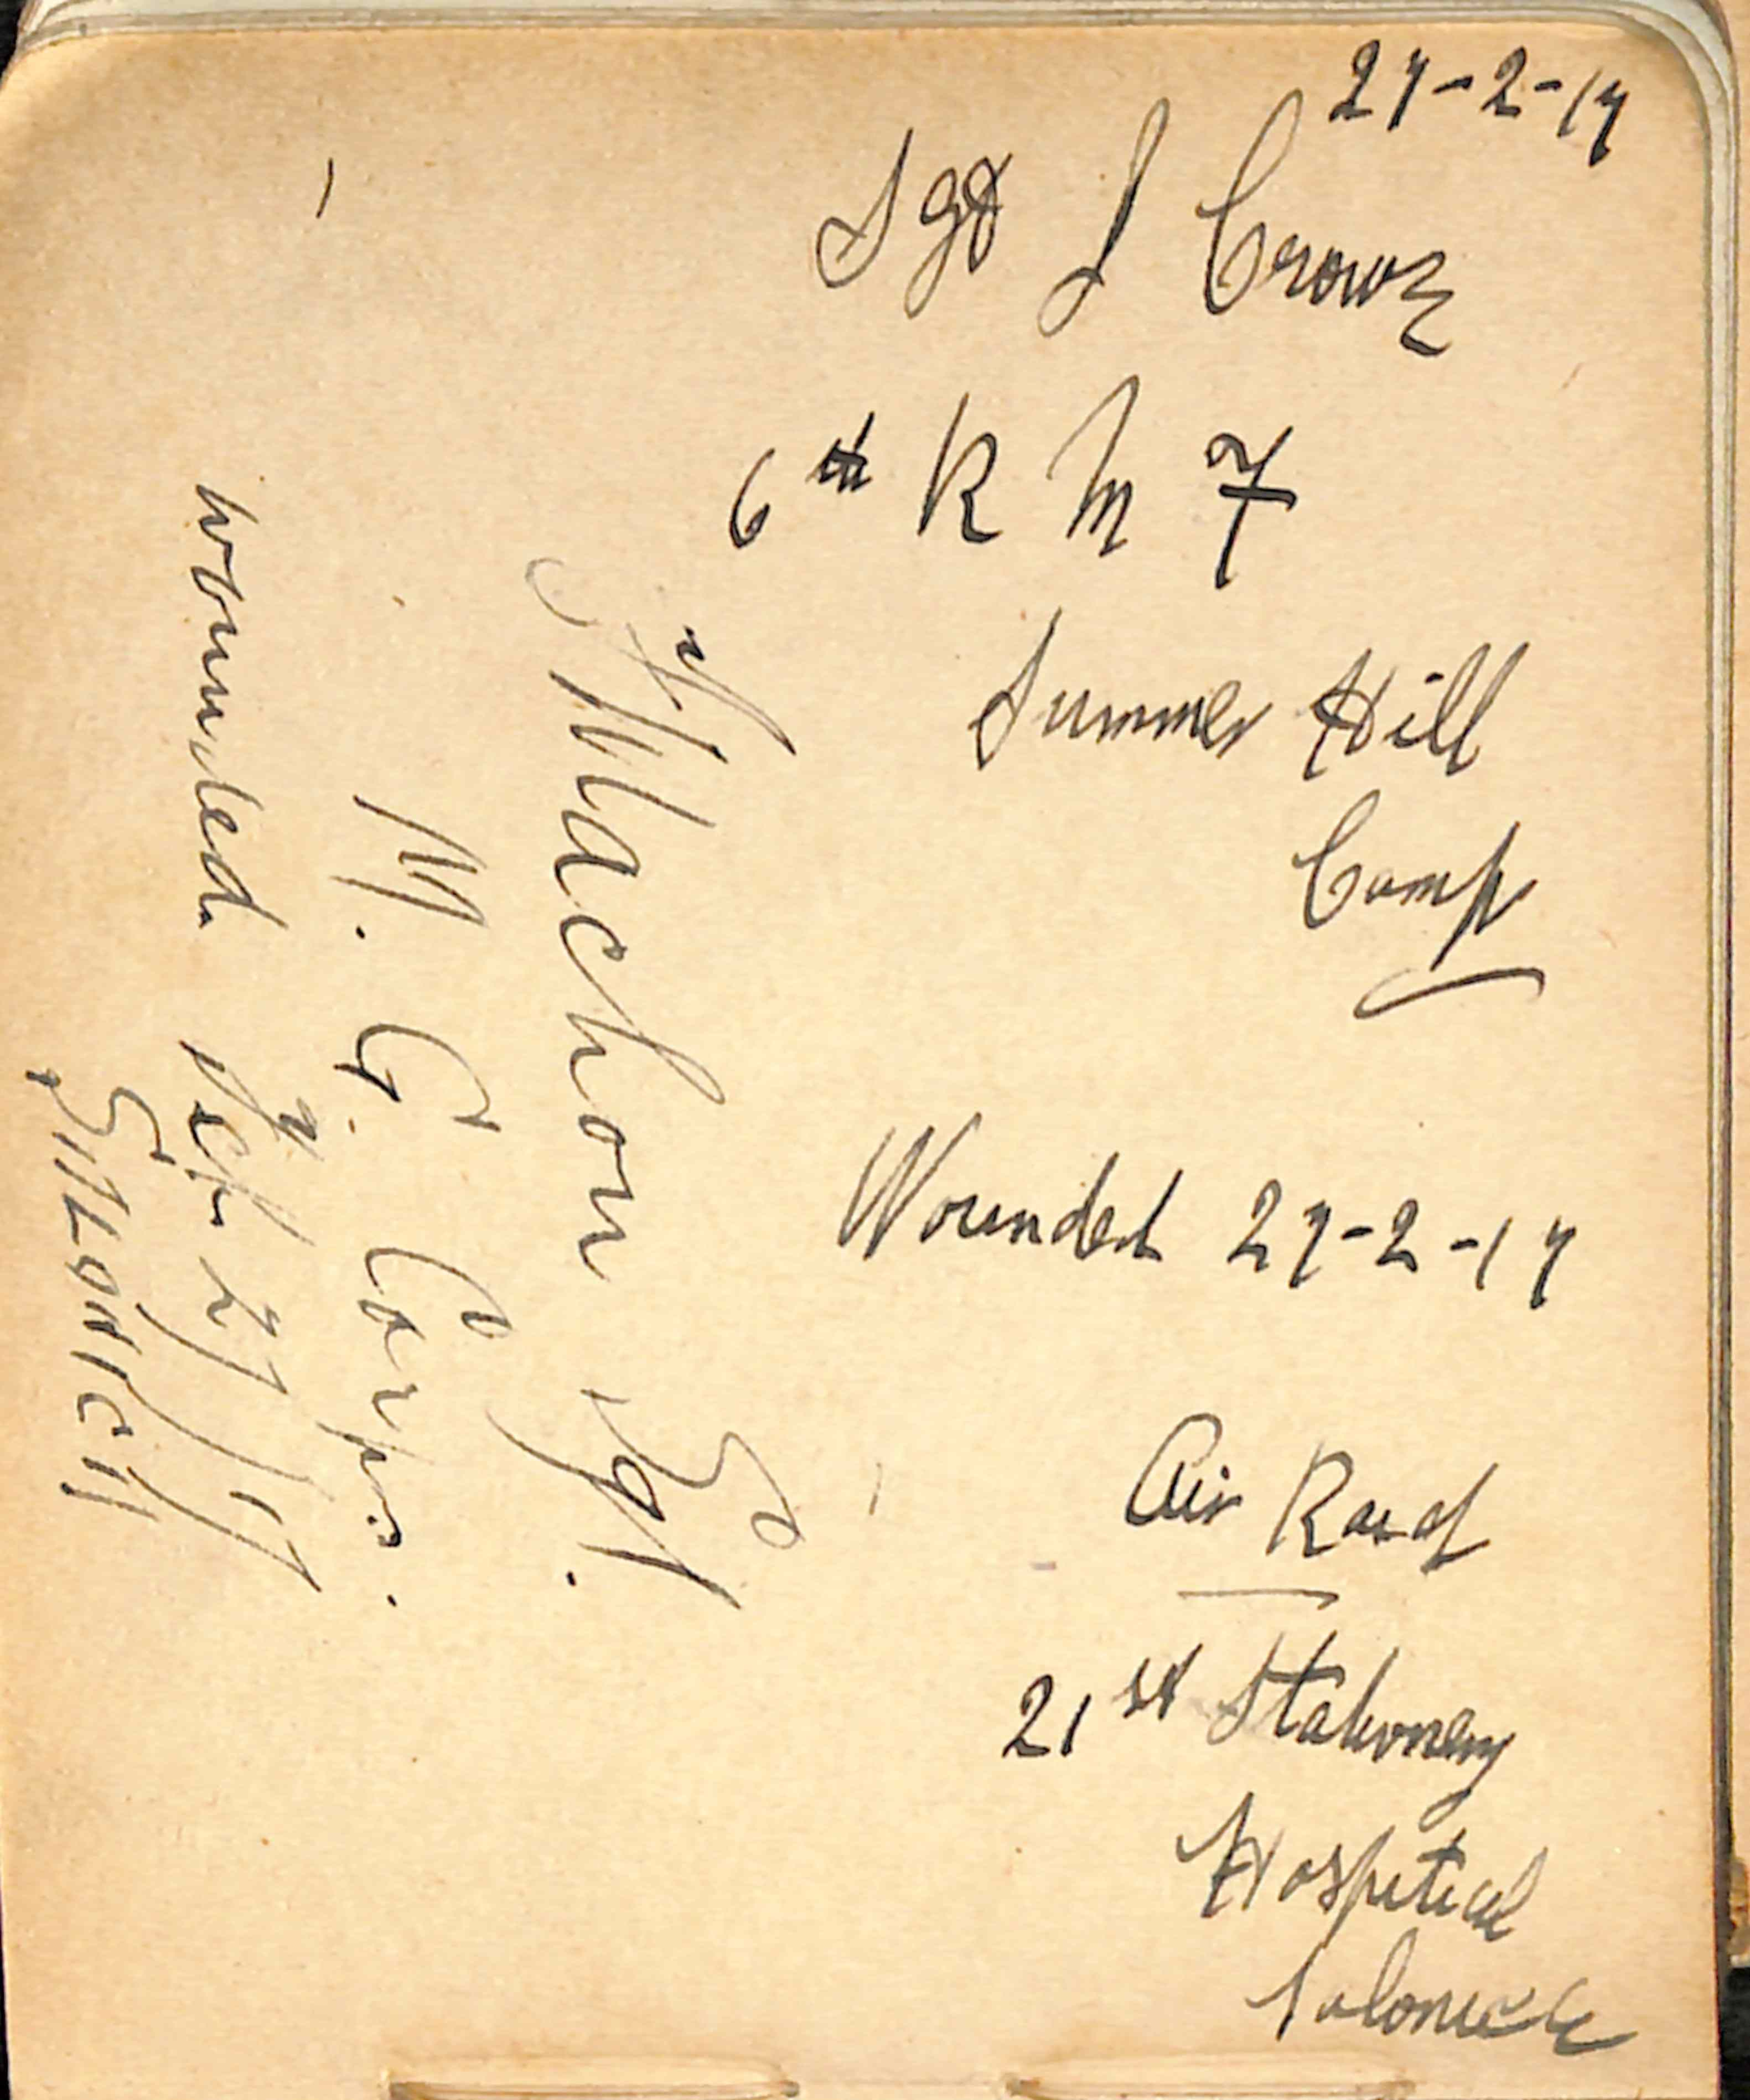 27-2-17
Sgt J Crowe
6th R M F
Summer Hill
Camp
Wounded 27-2-17
Air Raid
21st Stationery
Hospital
Salonica
Machon Sgt.
M. G. Corps.
wounded Feb 27/17